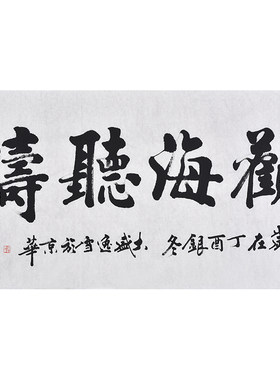 觀海聽濤
歲在丁酉銀冬 盛逸雪於京華